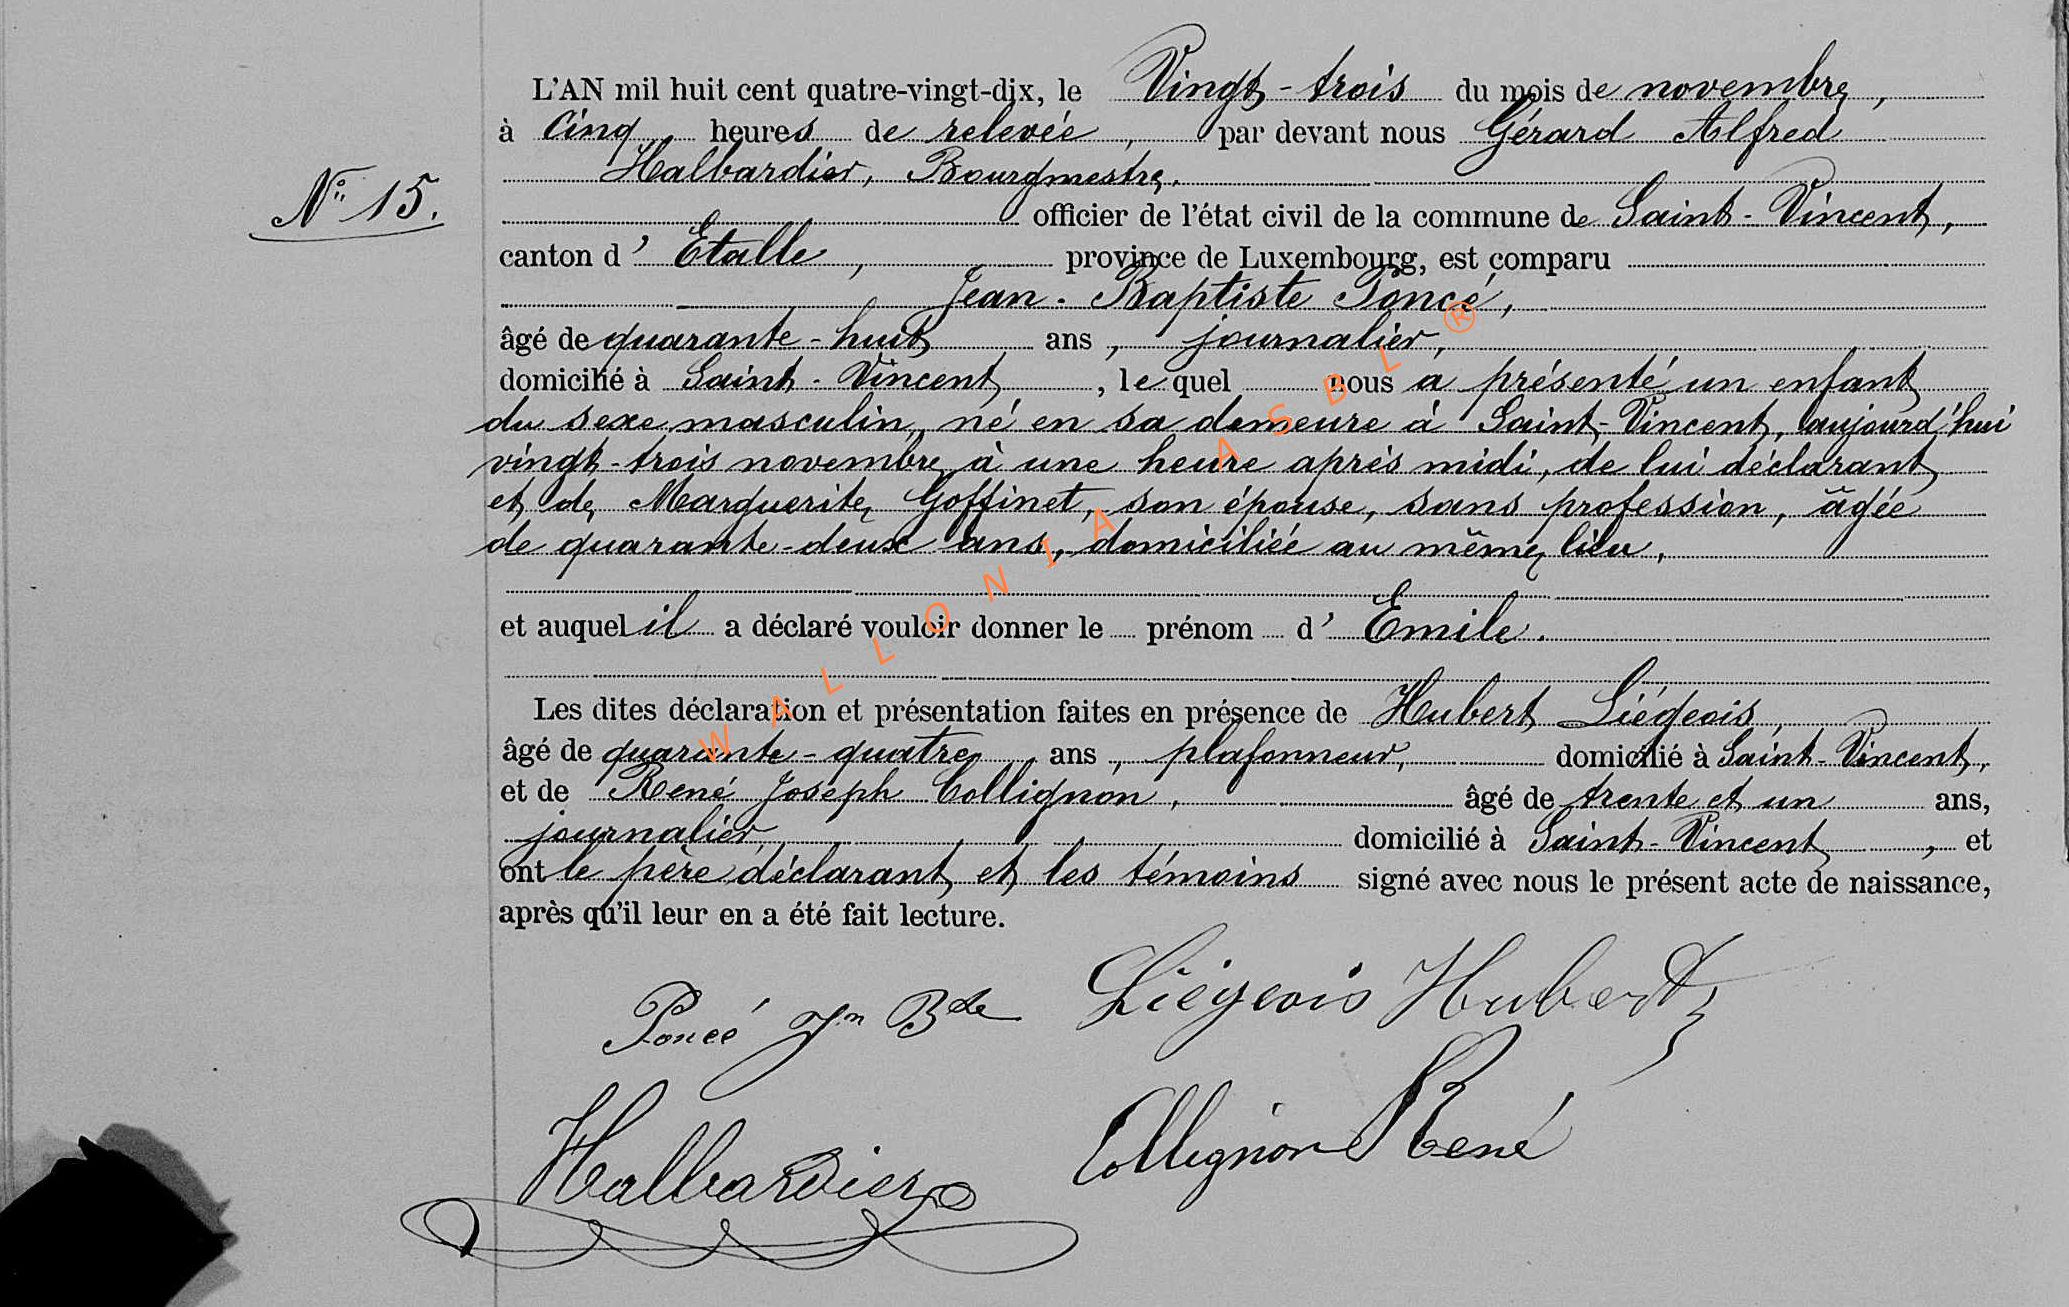 L'AN mil huit cent quatre-vingt-dix, le Vingt-trois du mois de novembre,
à Cinq heures de relevée, par devant nous Gérard Alfred
Halbardier, Bourgmestre.
N° 15.
officier de l'état civil de la commune de Saint-Vincent,
canton d'Etalle, province de Luxembourg, est comparu
Jean-Baptiste Poncé,
âgé de quarante-huit ans, journalier,
domicilié à Saint-Vincent, lequel nous a présenté un enfant
du sexe masculin, né en sa demeure à Saint-Vincent, aujourd'hui
vingt-trois novembre à une heure après midi, de lui déclarant
et de Marguerite Goffinet, son épouse, sans profession, âgée
de quarante-deux ans, domiciliée au même lieu,
et auquel il a déclaré vouloir donner le prénom d'Emile.
Les dites déclaration et présentation faites en présence de Hubert Liégeois,
âgé de quarante-quatre ans, plafonneur, domicilié à Saint-Vincent,
et de René Joseph Collignon, âgé de trente et un ans,
journalier, domicilié à Saint-Vincent, et
ont le père déclarant et les témoins signé avec nous le présent acte de naissance,
après qu'il leur en a été fait lecture.
Poncé Jn Bte Liégeois Hubert
Halbardier Collignon René
WALLONIA ASBL ®